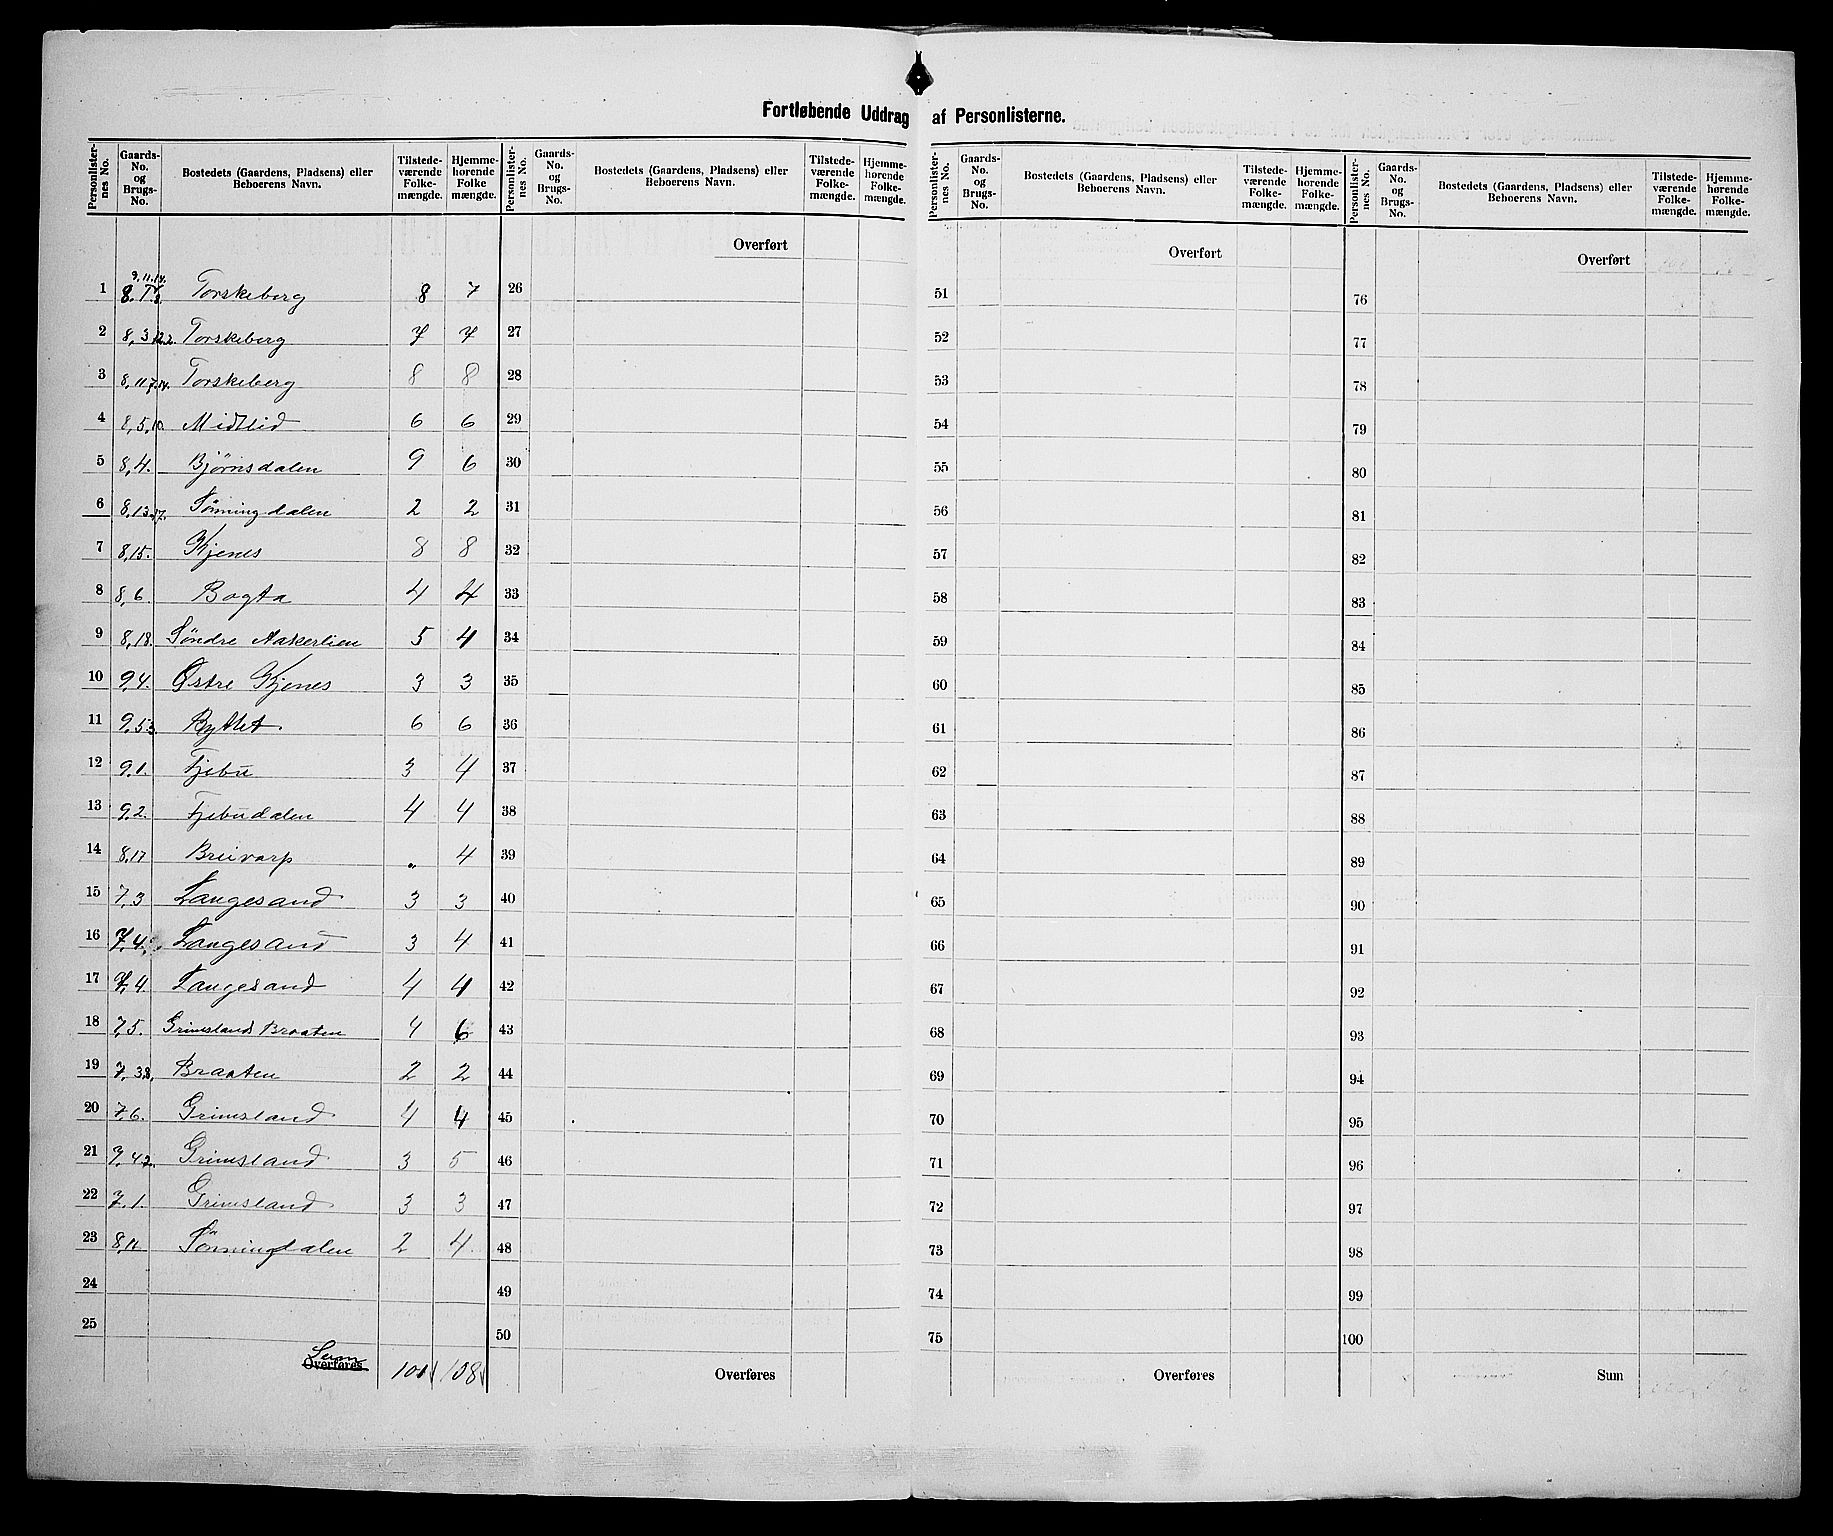 Fortløbende Uddrag af Personlisterne.
Personlister-nes No. | Gaards-No. og Brugs-No. | Bostedets (Gaardens, Pladsens) eller Beboerens Navn. | Tilstede-værende Folke-mængde. | Hjemme-hørende Folke mængde.
1 Torskeberg 8 7
2 8,3 Torskeberg 7 7
3 8,11 Torskeberg 8 8
4 8,5,10. Midtlid 6 6
5 8,4. Bjørnsdalen 9 6
6 8,13 Tønningdalen 2 2
7 8,15. Kjenes 8 8
8 8,6. Bogta 4 4
9 8,18. Søndre Aakerlien 5 4
10 9,4. Østre Kjenes 3 3
11 9,53. Ryttet. 6 6
12 9,1. Fjebu 3 4
13 9,2. Fjebudalen 4 4
14 8,17 Breivarp „ 4
15 7,3 Langesand 3 3
16 7,4. Langesand 3 4
17 7,4. Langesand 4 4
18 7,5. Grimsland Braaten 4 6
19 7,38, Braaten 2 2
20 7,6. Grimsland 4 4
21 7,42. Grimsland 3 5
22 7,1. Grimsland 3 3
23 8,11 Tønningdalen 2 4.
24
25
Sum Overføres 101 108
Personlister-nes No. | Gaards-No. og Brugs-No. | Bostedets (Gaardens, Pladsens) eller Beboerens Navn. | Tilstede-værende Folke-mængde. | Hjemme-hørende Folke-mængde.
Overført
26
27
28
29
30
31
32
33
34
35
36
37
38
39
40
41
42
43
44
45
46
47
48
49
50
Overføres
Personlister-nes No. | Gaards-No. og Brugs-No. | Bostedets (Gaardens, Pladsens) eller Beboerens Navn. | Tilstede-værende Folke-mængde. | Hjemme-hørende Folke-mængde.
Overført
51
52
53
54
55
56
57
58
59
60
61
62
63
64
65
66
67
68
69
70
71
72
73
74
75
Overføres
Personlister-nes No. | Gaards-No. og Brugs-No. | Bostedets (Gaardens, Pladsens) eller Beboerens Navn. | Tilstede-værende Folke-mængde. | Hjemme-hørende Folke-mængde.
Overført
76
77
78
79
80
81
82
83
84
85
86
87
88
89
90
91
92
93
94
95
96
97
98
99
100
Sum